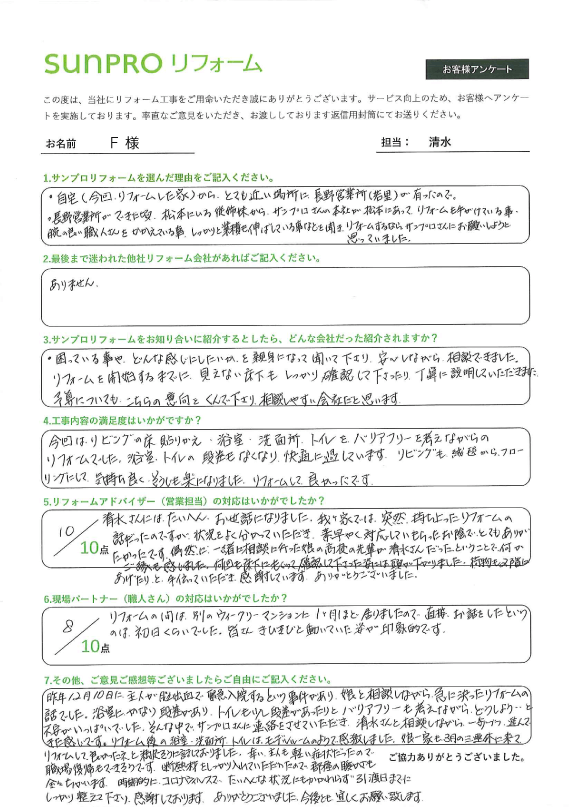 sunPRO リフォーム
お客様アンケート
この度は、当社にリフォーム工事をご用命いただき誠にありがとうございます。サービス向上のため、お客様へアンケー
トを実施しております。率直なご意見をいただき、お渡ししております返信用封筒にてお送りください。
お名前 F 様 担当： 清水
1.サンプロリフォームを選んだ理由をご記入ください。
・自宅(今回、リフォームした家)から、とても近い場所に長野営業所(若里)が有ったので。
・長野営業所ができた頃、松本にいる従姉妹から、サンプロさんの本社が松本にあって、リフォームを手がけている事・
腕の良い職人さんをかかえている事、しっかりと業績を伸ばしている事などを聞き、リフォームするなら、サンプロさんにお願いしようと
思っていました。
2.最後まで迷われた他社リフォーム会社があればご記入ください。
ありません。
3.サンプロリフォームをお知り合いに紹介するとしたら、どんな会社だった紹介されますか？
・困っている事や、どんな感じにしたいか、を親身になって聞いて下さり、安心しながら、相談できました。
リフォームを開始するまでに、見えない床下もしっかり確認して下さったり、丁寧に説明していただきました。
予算についても、こちらの意向をくんで下さり、相談しやすい会社だと思います。
4.工事内容の満足度はいかがですか？
今回は、リビングの床貼りかえ・浴室・洗面所、トイレをバリアフリーを考えながらの
リフォームでした。浴室、トイレの段差もなくなり、快適に過しています。リビングも絨毯から、フロー
リングにして、気持ち良く、そうじも楽になりました。リフォームして良かったです。
5.リフォームアドバイザー（営業担当）の対応はいかがでしたか？
10／10点
清水さんには、たいへん、お世話になりました。我が家では、突然、持ち上ったリフォームの
話だったのですが、状況をよく分かっていただき、素早やく対応していもらったお陰で、とてもありが
たかったです。偶然に、一緒に相談に行った娘の高校の先輩が清水さんだったということで、何か
ご縁を感じました。何回も床下にもぐって確認して下さった姿には頭が下がりました。
あげたり、と、手伝っていただき、感謝しています。ありがとうございました。
6.現場パートナー（職人さん）の対応はいかがでしたか？
8／10点
リフォームの間は、別のウィークリーマンションに1ヶ月ほど居りましたので、直接、お話をしたという
のは、初日くらいでした。皆さん、きびきびと動いていた姿が印象的です。
7.その他、ご意見ご感想等ございましたらご自由にご記入ください。
昨年12月10日に、主人が脳出血で緊急入院するという事件があり、娘と相談しながら、急に決ったリフォームの
話でした。浴室にかなり段差があり、トイレも少し段差があったりとバリアフリーも考えながら、どうしよう…と
不安がいっぱいでした。そんな中で、サンプロさんに連絡をさせていただき、清水さんと相談しながら、一歩づつ、進んで
きた感じです。リフォーム後の浴室・洗面所、トイレは、モデルルームのようで感激しました。娘一家も3月の三連休に来て
リフォームして良かったネ、と
職場復帰もできそうです。
しっかり整えて下さり、感謝しております。ありがとうございました。今後とも宜しくお願い致します。
ご協力ありがとうございました。